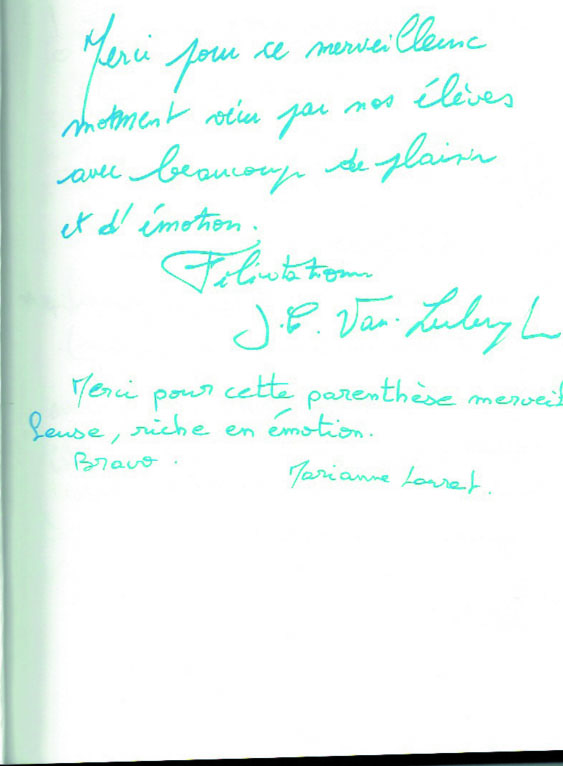 Merci pour ce merveilleux
moment vécu par nos élèves
avec beaucoup de plaisir
et d'émotion.
Félicitations
J.C. Van.
Merci pour cette parenthèse merveil
leuse, riche en émotion.
Bravo.
Marianne